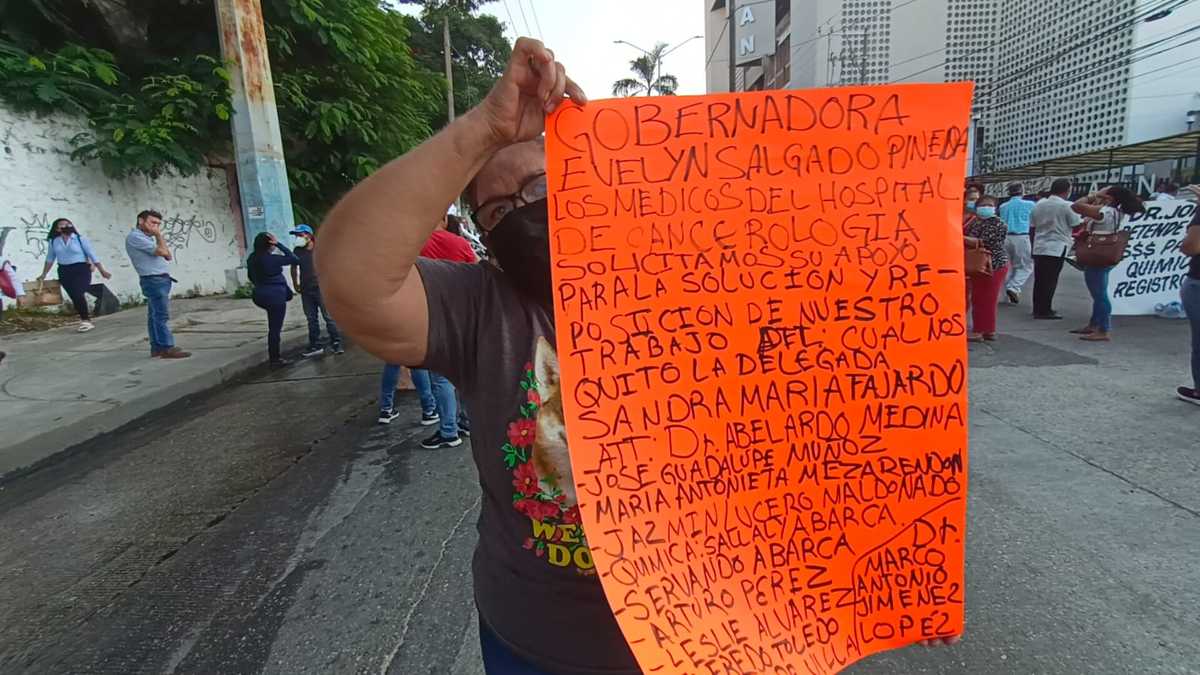 GOBERNADORA
EVELYN SALGADO PINEDA
LOS MEDICOS DEL HOSPITAL
DE CANCEROLOGIA
SOLICITAMOS SU APOYO
PARA LA SOLUCION Y RE-
POSICION DE NUESTRO
TRABAJO DEL CUAL NOS
QUITO LA DELEGADA
SANDRA MARIA FAJARDO
ATT: Dr. ABELARDO MEDINA
-JOSE GUADALUPE MUÑOZ
MARIA ANTONIETA MEZA RENDON
-JAZMIN LUCERO MALDONADO
QUIMICA: SALLACY ABARCA
-SERVANDO ABARCA
-ARTURO PEREZ
-LESLIE ALVAREZ
TOLEDO
Dr.
MARCO
ANTONIO
JIMENEZ
LOPEZ
AN
WE
DO
DR. JO
DETENDE
$$$ P
QUIMIC
REGISTRO